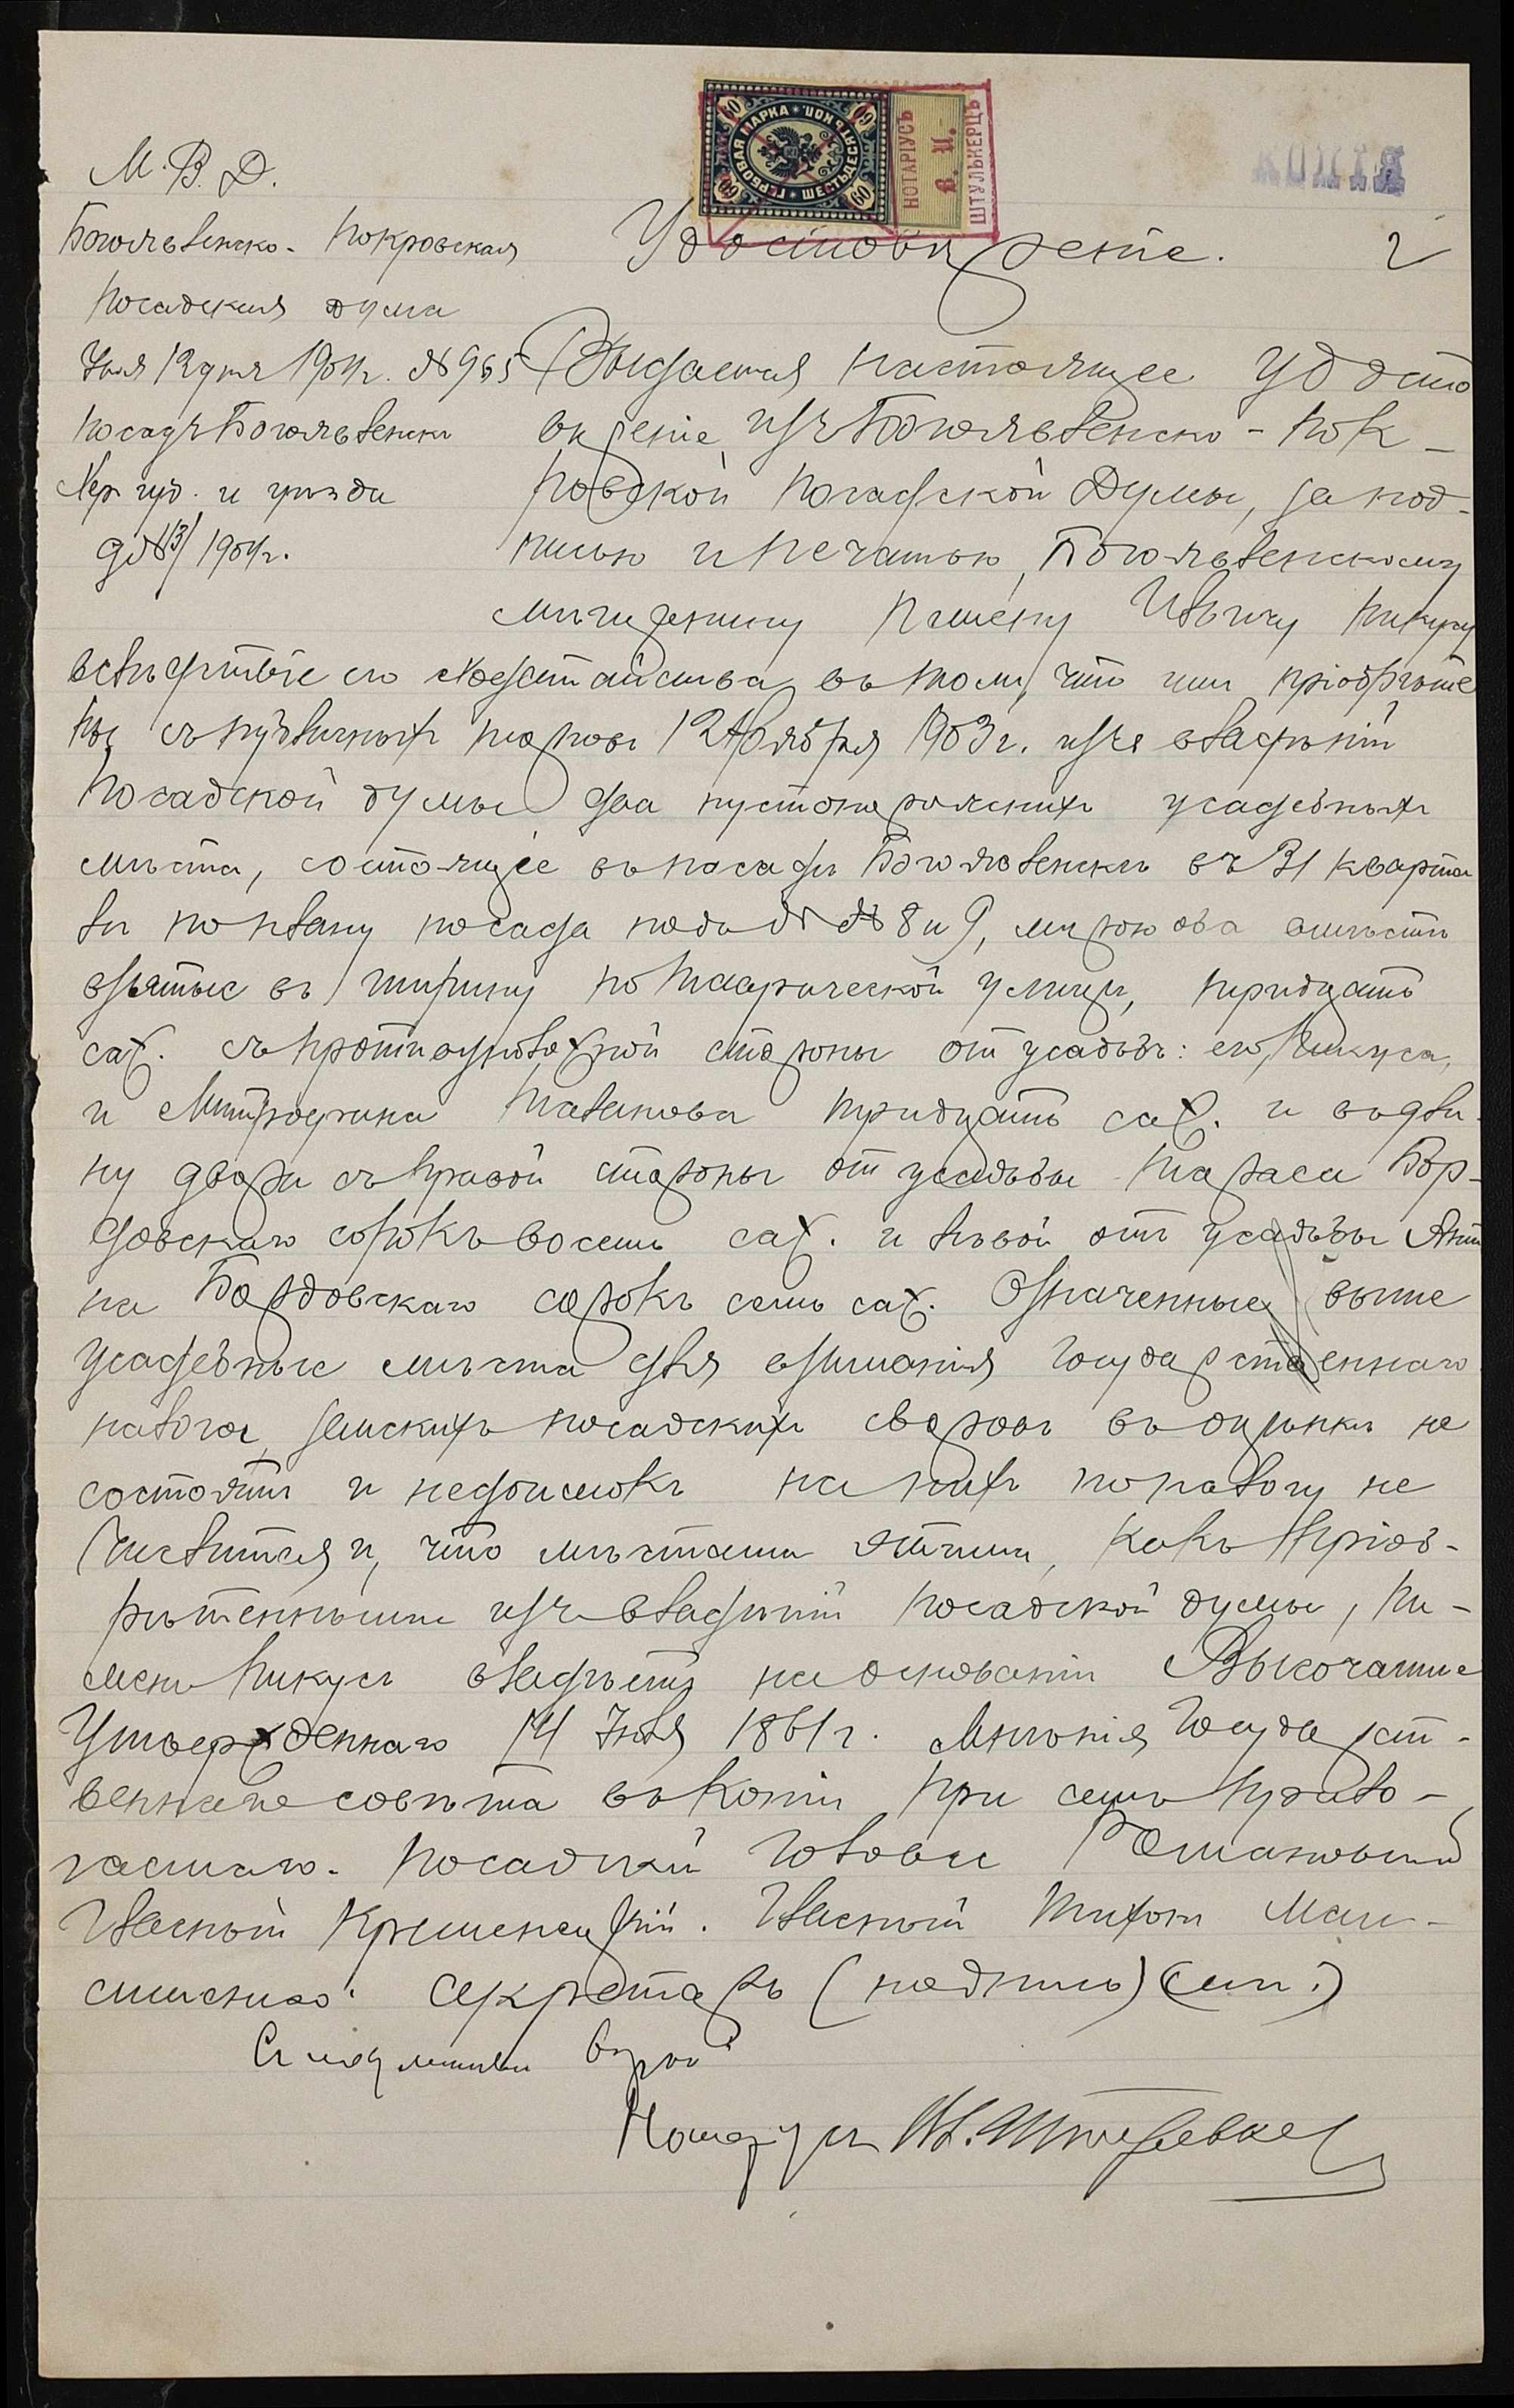 КОПІЯ
ГЕРБОВАЯ МАРКА * ШЕСТЬДЕСЯТЪ КОП.
60 60 60 60
НОТАРІУСЪ
В. И.
ШТУЛЬКЕРЦЪ
М. В. Д.
Богоявленско-Покровская
Посадская дума
Іюля 12 дня 1904 г. № 965
Посадъ Богоявленскъ
Хер. губ. и уѣзда
1904 г.
Удостовѣреніе.
2
Выдается настоящее Удосто
вѣреніе изъ Богоявленско-Пок-
ровской Посадской Думы, за под-
писью и печатью, Богоявленскому
мѣщанину Пимену Ильичу Пикусу
вслѣдствіе его ходатайства въ томъ, что имъ пріобрѣте
ны съ публичныхъ торговъ 12 Ноября 1903 г. изъ владѣній
Посадской думы два пустопорожнихъ усадебныхъ
мѣста, состоящіе въ посадѣ Богоявленскѣ въ 31 кварта
лѣ по плану посада подъ № № 8 и 9, мѣрою оба вмѣстѣ
взятые въ ширину по Таврической улицѣ, тридцать
саж. съ противуположной стороны отъ усадьбъ: его, Пикуса,
и Митрофана Таланова тридцать саж. и въ дли-
ну двора съ правой стороны отъ усадьбы Тараса Бор-
довскаго сорокъ восемь саж. и лѣвой отъ усадьбы Анто
на Бордовскаго сорокъ семь саж. Означенные выше
усадебные мѣста для взиманія Государственнаго
налога, земскихъ посадскихъ сборовъ въ оцѣнкѣ не
состоятъ и недоимокъ на нихъ по налогу не
числится и, что мѣстами этими, какъ пріоб-
рѣтенными изъ владѣній Посадской думы, Пи-
менъ Пикусъ владѣетъ на основаніи Высочайше
Утвержденнаго 14 Іюля 1861 г. Мнѣнія Государст-
веннаго совѣта въ копіи при семъ прила-
гаемаго. Посадскій Голова Романовскій
Гласный Кременецкій. Гласный Тихонъ Мак-
сименко. Секретарь (подпись) (м.п.)
Съ подлиннымъ вѣрно
Нотаріусъ